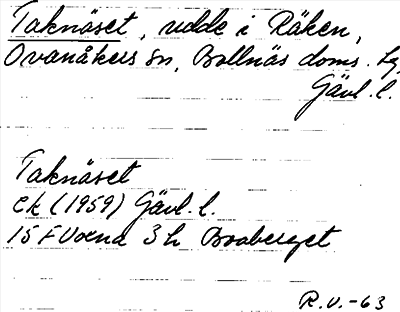 Taknäset, udde i Räken,
Ovanåkers sn, Bollnäs doms. tg,
Gävl. l.
Taknäset
ek (1959) Gävl. l.
15 F Voxna 3 h Broberget
R.V.-63